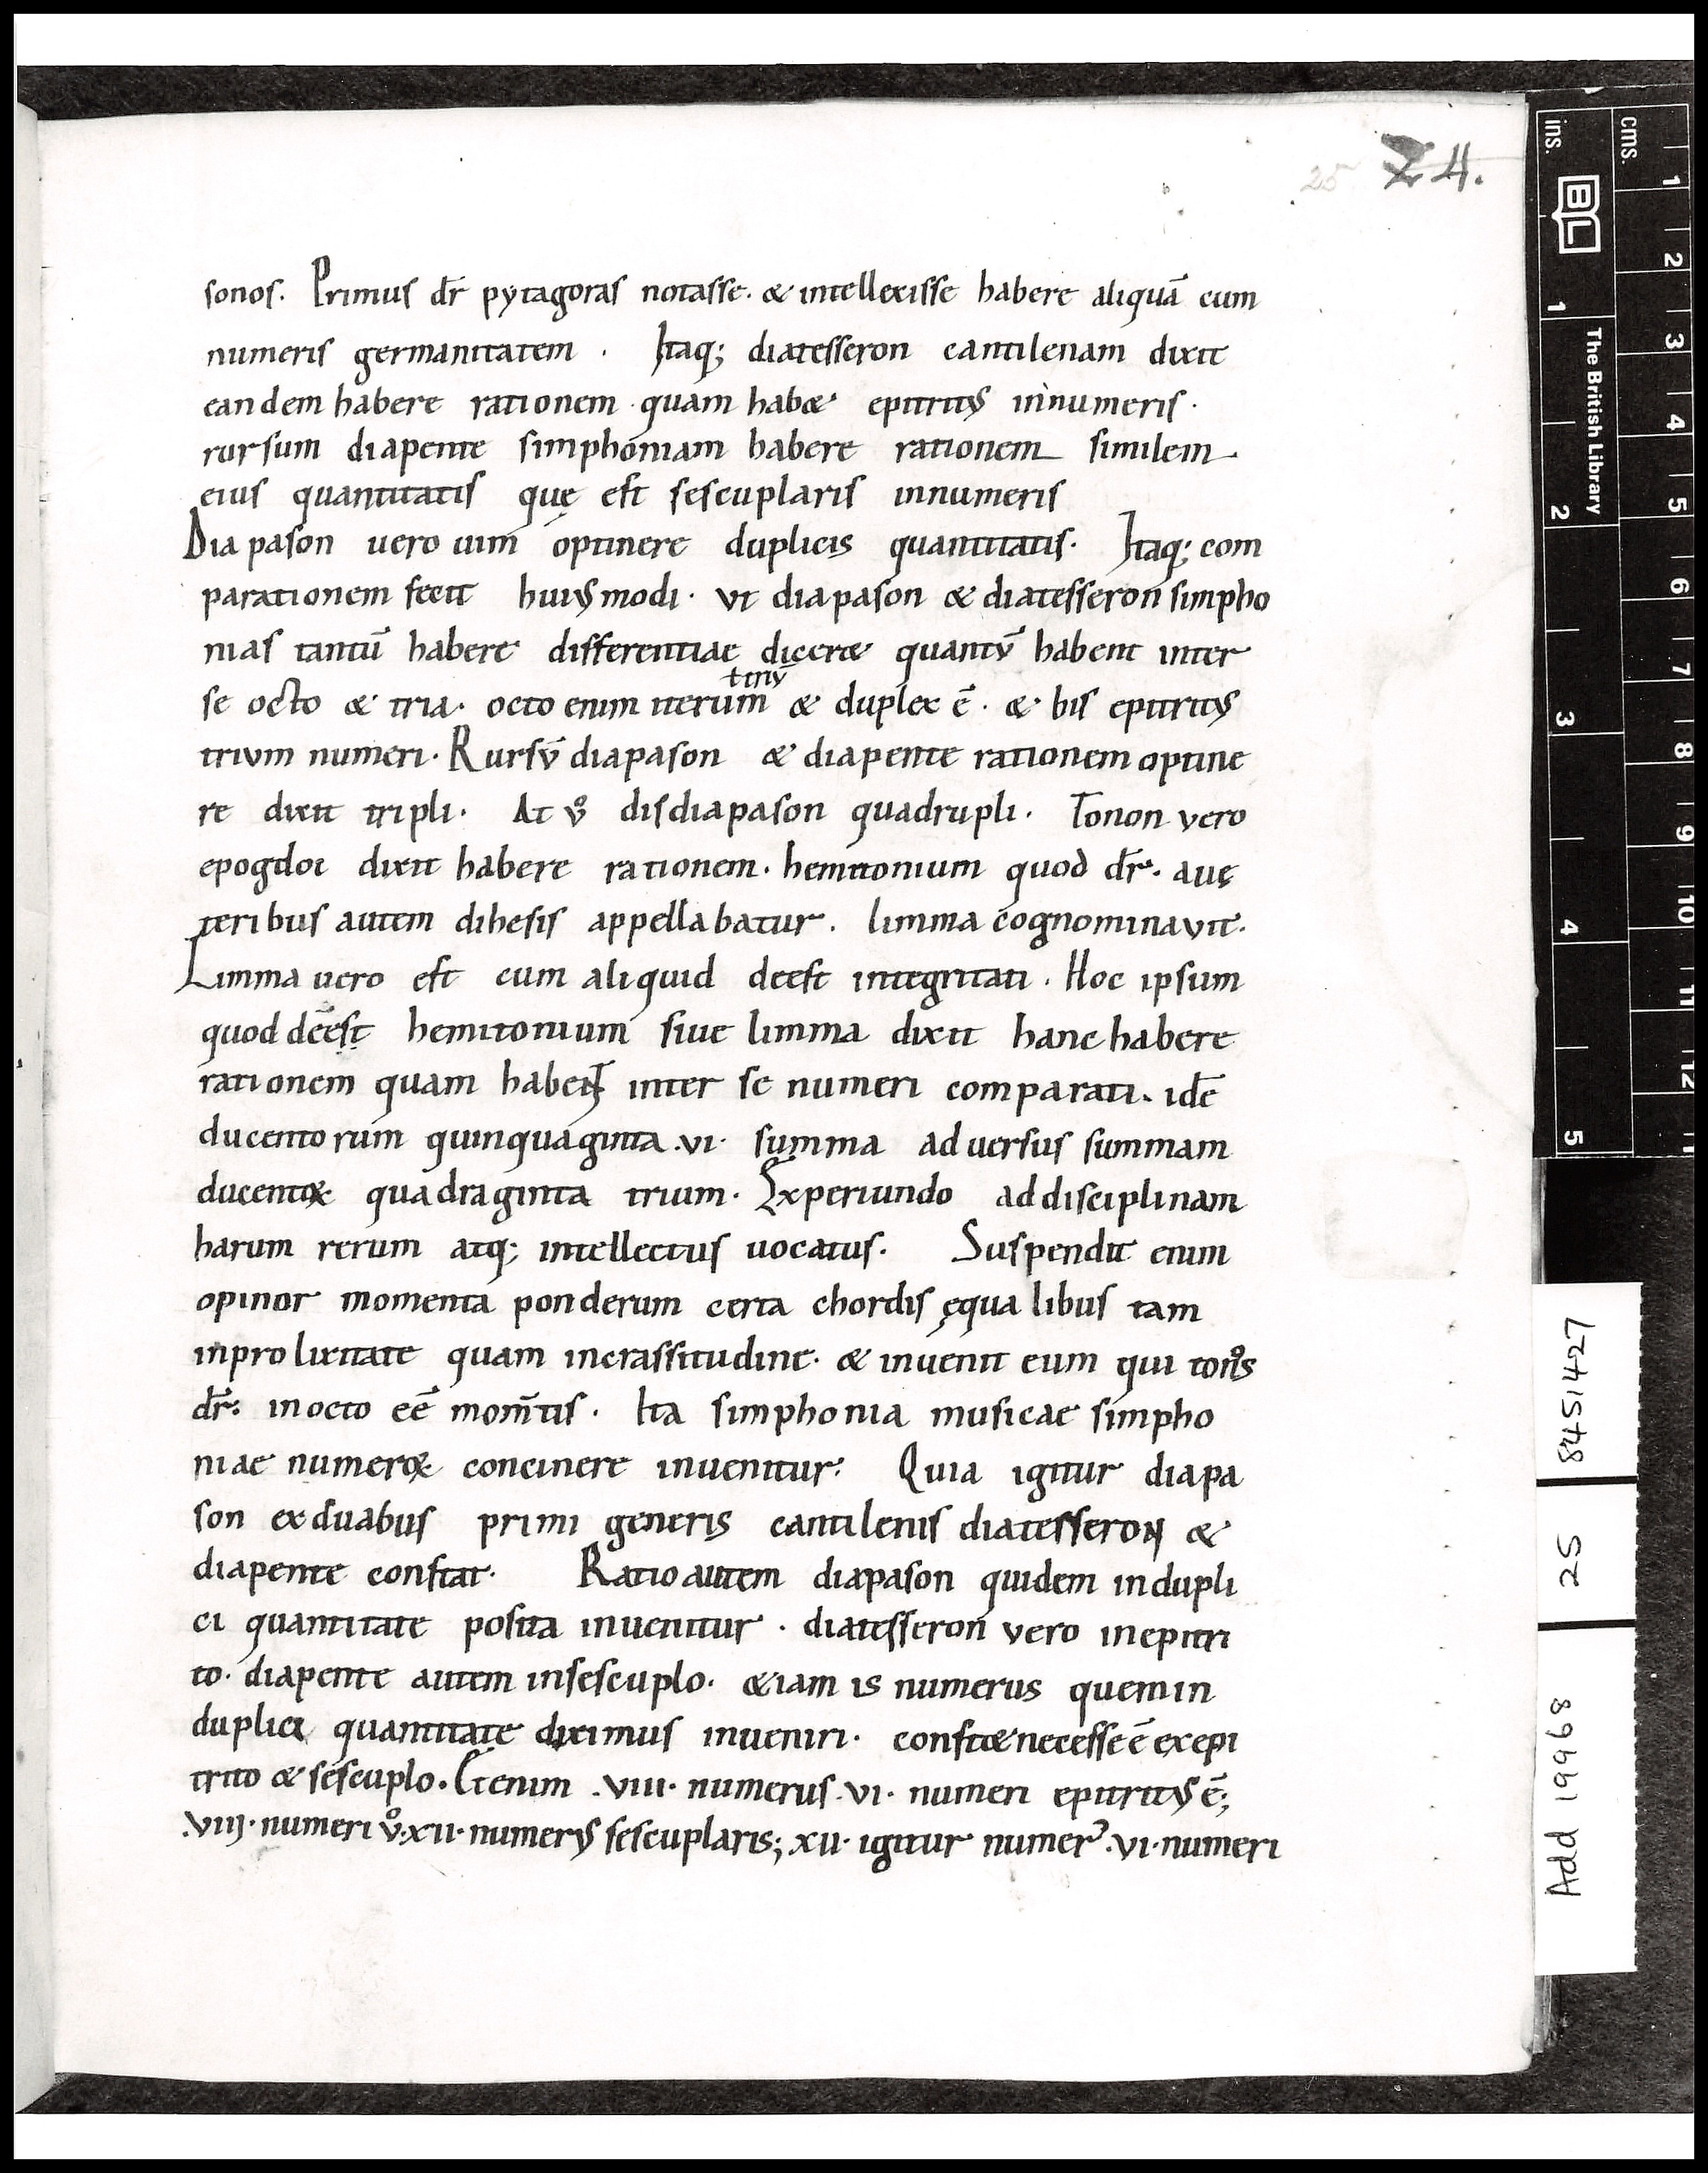 25 24.
sonos. Primus dr̄ pytagoras notasse. & intellexisse habere aliquā cum
numeris germanitatem . Itaq; diatesseron cantilenam dixit
eandem habere rationem quam hab& epitritꝰ innumeris.
rursum diapente simphoniam habere rationem similem
eius quantitatis quę est sescuplaris innumeris
Diapason uero uim optinere duplicis quantitatis. Itaq; com
parationem fecit huiꝰmodi. vt diapason & diatesseron simpho
nias tantū habere differentiae dicer& quantv̄ habent inter
triv̄
se octo & tria. octo enim iterum & duplex ē. & bis epitritꝰ
trivm numeri. Rursv̄ diapason & diapente rationem optine
re dixit tripli. At vͦ disdiapason quadrupli. Tonon vero
epogdoi dixit habere rationem. hemitonium quod dr̄. auę
teribus autem dihesis appellabatur. limma cognominavit.
Limma uero est cum aliquid deest integritati. Hoc ipsum
quod deest hemitonium siue limma dixit hanc habere
rationem quam habent inter se numeri comparati. idē
ducentorum quinquaginta .vi. summa aduersus summam
ducentoꝝ quadraginta trium. Experiundo addisciplinam
harum rerum atq; intellectus uocatus. Suspendit enim
opinor momenta ponderum certa chordis ęqualibus tam
inprolixitate quam incrassitudine. & inuenit eum qui tonꝰs
dr̄. inocto eē mom̄tis. Ita simphonia musicae simpho
niae numeroꝝ concinere inuenitur. Quia igitur diapa
son exduabus primi generis cantilenis diatesseron &
diapente constat. Ratio autem diapason quidem indupli
ci quantitate posita inuenitur . diatesseron vero inepitri
to. diapente autem insescuplo. &iam is numerus quemin
duplici quantitate diximus inueniri. const& necesse ē exepi
trito & sescuplo. Etenim .viii. numerus .vi. numeri epitritꝰ ē;
.viij. numeri vͦ .xii. numerꝰ sescuplaris; xii. igitur numerꝰ .vi. numeri
ins.
cms.
BL
The British Library
1 2 3 4 5
1 2 3 4 5 6 7 8 9 10 11 12
Add 19968 25 8451427